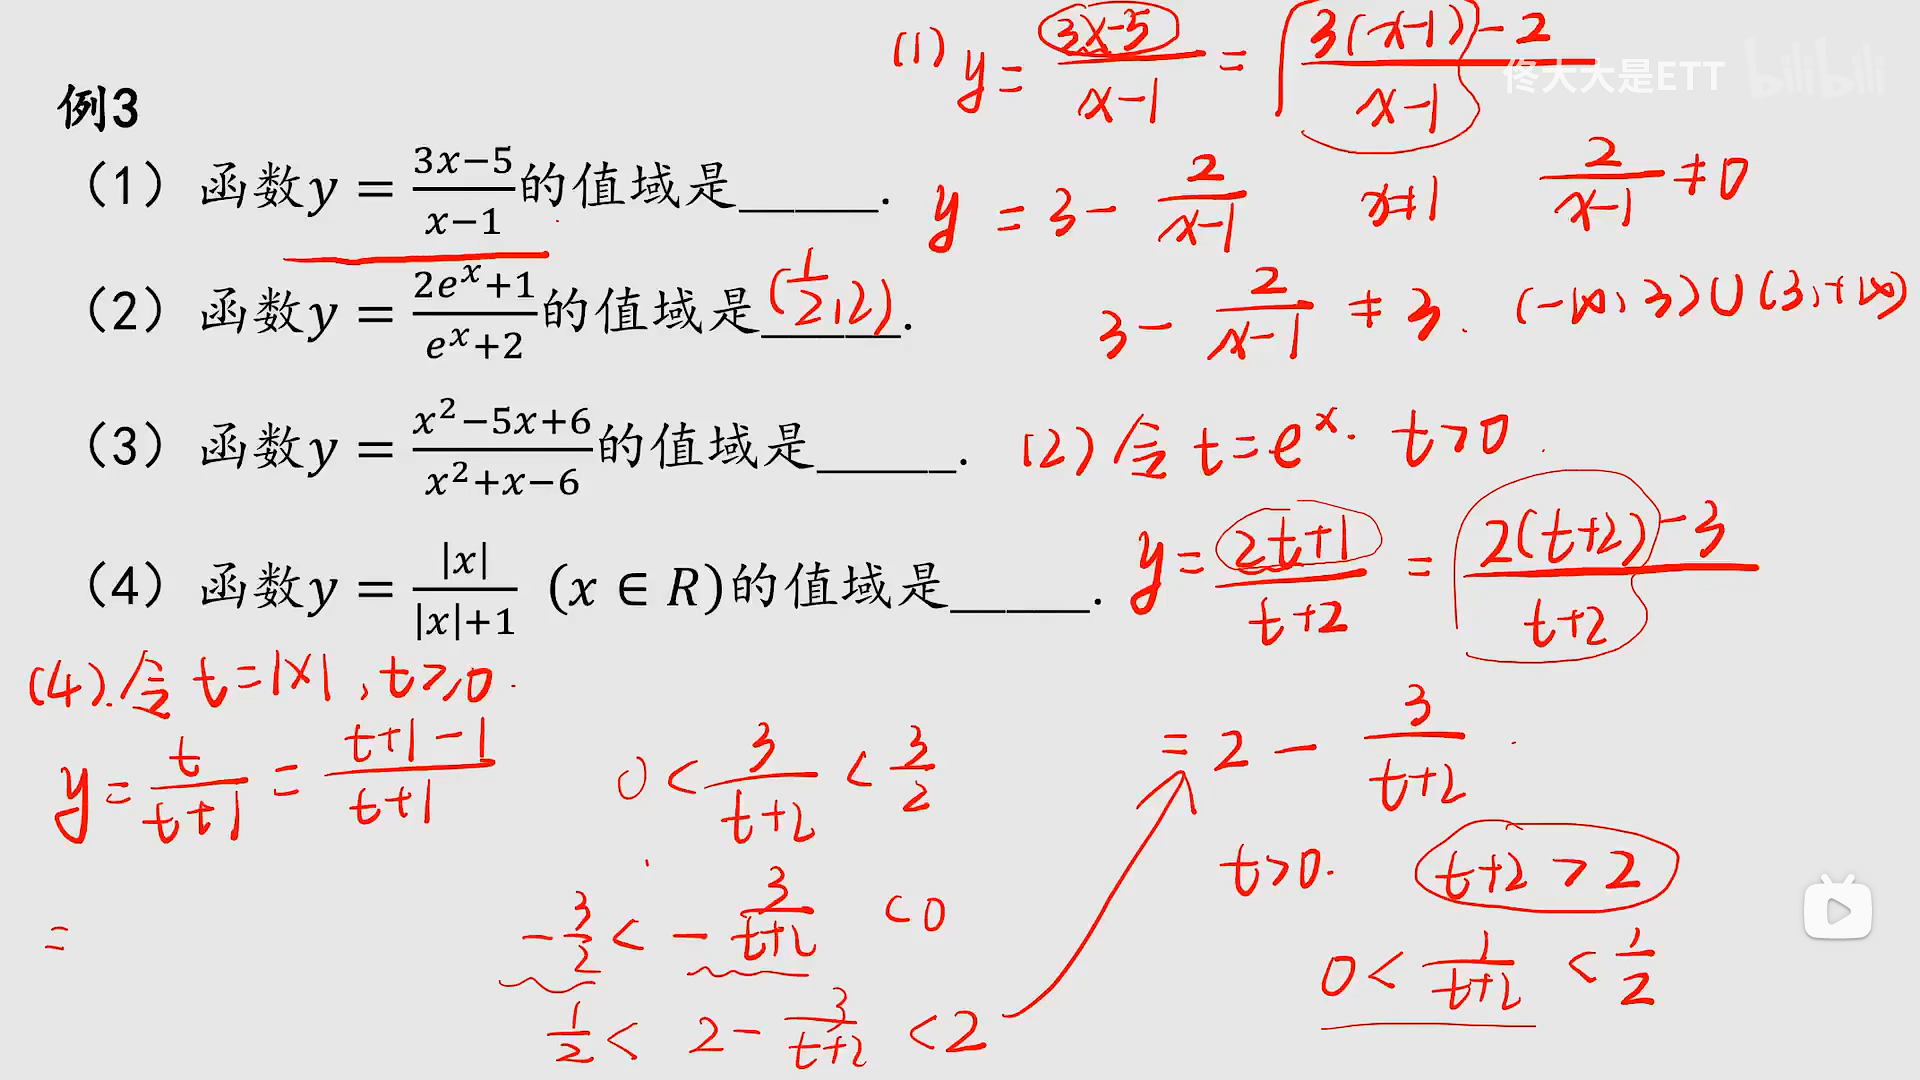 佟大大是ETT bilibili
例3
（1）函数y = (3x−5)/(x−1)的值域是_____.
（2）函数y = (2e^x+1)/(e^x+2)的值域是_____.
(1/2, 2)
（3）函数y = (x²−5x+6)/(x²+x−6)的值域是_____.
（4）函数y = |x|/(|x|+1) (x ∈ R)的值域是_____.
(1) y = (3x−5)/(x−1) = (3(x−1)−2)/(x−1)
y = 3 − 2/(x−1) x≠1 2/(x−1) ≠ 0
3 − 2/(x−1) ≠ 3. (−∞, 3)∪(3, +∞)
(2) 令 t = e^x. t>0.
y = (2t+1)/(t+2) = (2(t+2)−3)/(t+2)
= 2 − 3/(t+2).
t>0. t+2 > 2
0 < 1/(t+2) < 1/2
0 < 3/(t+2) < 3/2
−3/2 < −3/(t+2) < 0
1/2 < 2 − 3/(t+2) < 2
(4). 令 t = |x|, t≥0.
y = t/(t+1) = (t+1−1)/(t+1)
=